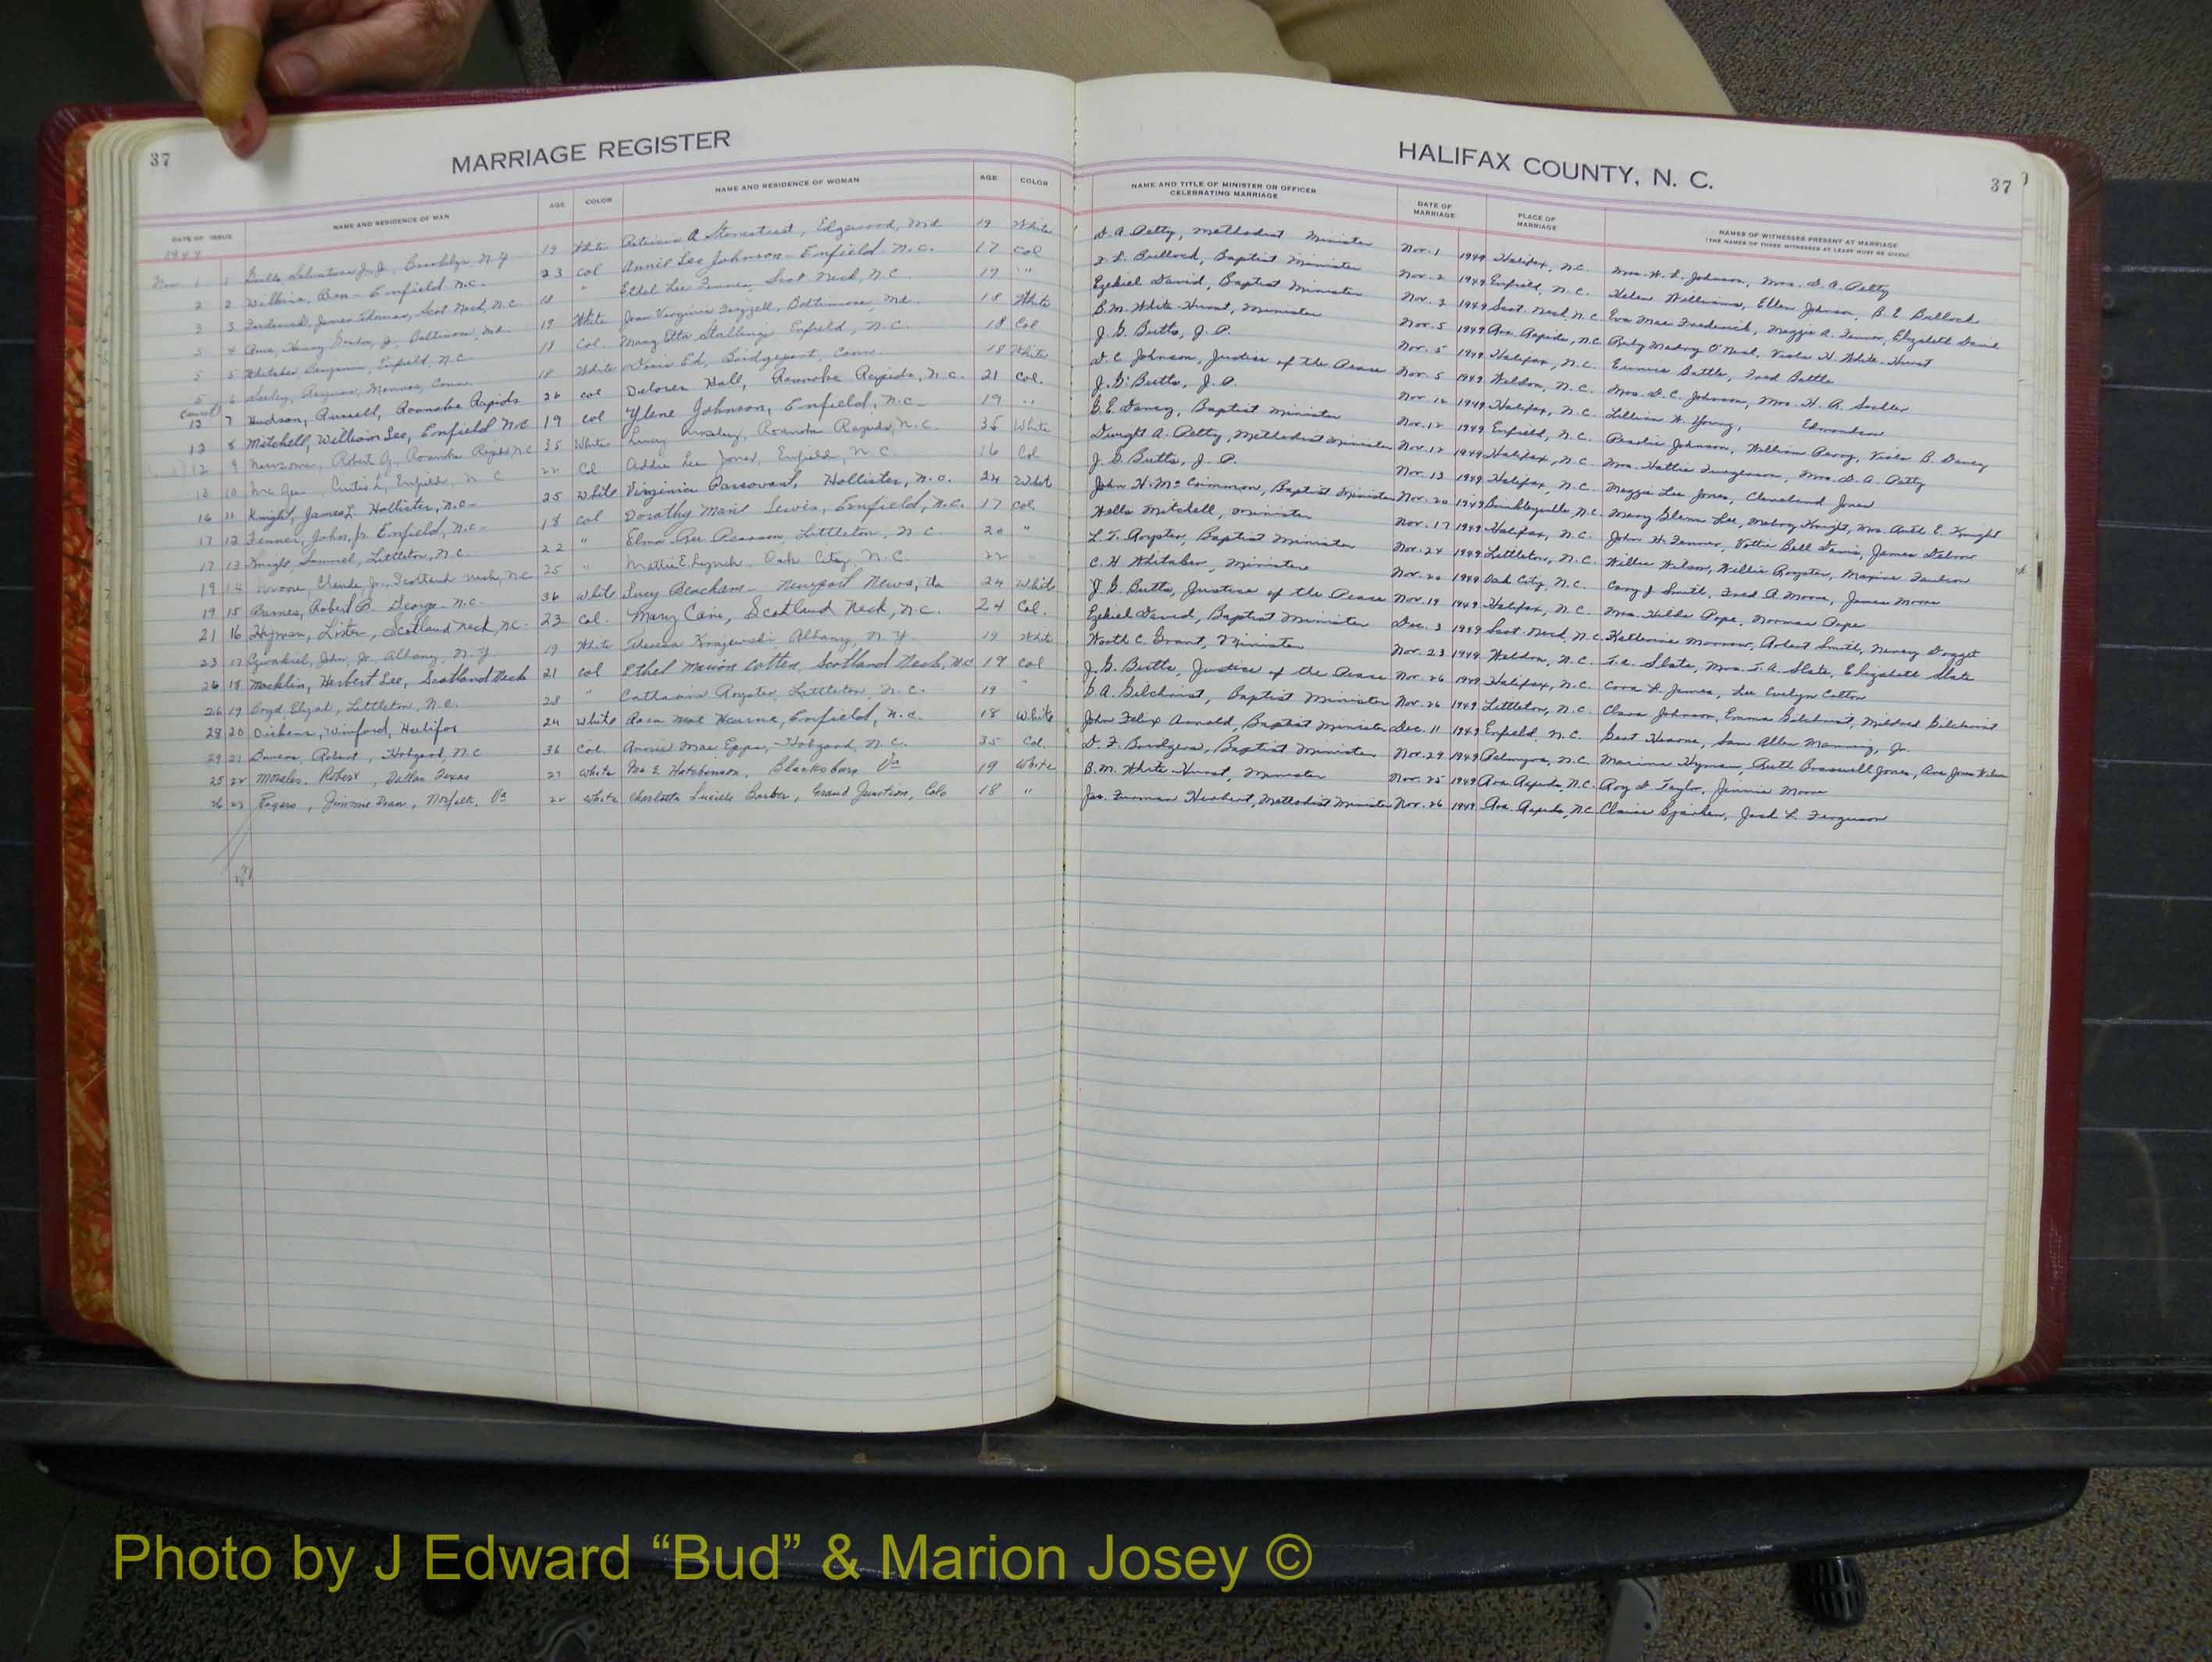 37
MARRIAGE REGISTER
DATE OF ISSUE NAME AND RESIDENCE OF MAN AGE COLOR NAME AND RESIDENCE OF WOMAN AGE COLOR
1949
Nov 1 1 Brooklyn, N.Y. 19 White Patricia A Stonestreet, Edgewood, Md 19 White
2 2 Wilkins, Ben - Enfield N.C. 23 Col Annie Lee Johnson - Enfield N.C. 17 Col
3 3 Frederick, James Thomas, Scot Neck, N.C 18 " Ethel Lee Fenner, Scot Neck, N.C. 17 "
5 4 Baltimore, Md. 19 White Joan Virginia Frizzell, Baltimore, Md. 18 White
5 5 Whitaker, Benjamin, Enfield, N.C. 18 Col. Mary Etta Stallings Enfield, N.C. 18 Col
5 6 Conn. 18 White Doris Bridgeport, Conn. 18 White
12 7 Hudson, Russell, Roanoke Rapids 26 Col Delores Hall, Roanoke Rapids, N.C. 21 Col.
12 8 Mitchell, William Lee, Enfield N.C 19 Col Ylene Johnson, Enfield, N.C. 19 "
12 9 Newsome, Robert G, Roanoke Rapids N.C 35 White Roanoke Rapids, N.C. 35 White
13 10 Mc Gee, Curtis L, Enfield, N.C 22 Col Addie Lee Jones, Enfield, N.C 16 Col
16 11 Knight, James L. Hollister, N.C. 25 White Virginia Hollister, N.C. 24 White
17 12 Fenner, John, Jr. Enfield, N.C. 18 Col Dorothy Marie Lewis, Enfield, N.C. 17 Col
17 13 Knight, Samuel, Littleton, N.C. 22 " Elma Ree Pearson Littleton, N.C. 20 "
19 14 Moore, Claude Jr., Scotland Neck, N.C 25 " Mattie E. Lynch, Oak City, N.C 22 "
19 15 Barnes, Robert B. N.C. 36 White Lucy Beacham - Newport News, Va 24 White
21 16 Hyman, Lister, Scotland Neck, N.C. 23 Col. Mary Cain, Scotland Neck, N.C. 24 Col.
23 17 John, Jr. Albany, N.Y. 19 White Theresa Krajewski Albany, N.Y. 19 White
26 18 Macklin, Herbert Lee, Scotland Neck 21 Col Ethel Marion Cotten, Scotland Neck, N.C 19 Col
26 19 Boyd, Elijah, Littleton, N.C. 28 " Catherine Royster, Littleton, N.C. 19 "
28 20 Dickens, Winford, Halifax 24 White Rosa Mae Hearne, Enfield, N.C. 18 White
29 21 Robert, Hobgood, N.C 36 Col. Annie Mae Epps, Hobgood, N.C. 35 Col.
25 22 Morales, Robert, Dallas Texas 27 White Iva E Hutchinson, Blacksburg Va 19 White
26 23 Rogers, Jimmie Dean, Norfolk, Va 22 White Charlotte Lucille Barber, Grand Junction, Colo 18 "
HALIFAX COUNTY, N. C.
37
NAME AND TITLE OF MINISTER OR OFFICER CELEBRATING MARRIAGE DATE OF MARRIAGE PLACE OF MARRIAGE NAMES OF WITNESSES PRESENT AT MARRIAGE
(THE NAMES OF THREE WITNESSES AT LEAST MUST BE GIVEN)
D. A. Petty, Methodist Minister Nov. 1 1949 Halifax, N.C. Mrs. H. L. Johnson, Mrs. D. A. Petty
Bullock, Baptist Minister Nov. 2 1949 Enfield, N.C. Helen Williams, Ellen Johnson, B. E. Bullock
Ezekiel David, Baptist Minister Nov. 3 1949 Scot. Neck, N.C. Eva Mae Frederick, Maggie A. Fenner, Elizabeth David
B. M. White Hurst, Minister Nov. 5 1949 Roa. Rapids, N.C. Ruby Medry O'Neal, Viola H. White-Hurst
J. G. Butts, J. P. Nov. 5 1949 Halifax, N.C. Eunice Battle, Fred Battle
D. C. Johnson, Justice of the Peace Nov. 5 1949 Weldon, N.C. Mrs. D. C. Johnson, Mrs. H. R.
J. G. Butts, J. P. Nov. 12 1949 Halifax, N.C. Lillian W. Young, Edmondson
G. E. Dancy, Baptist Minister Nov. 12 1949 Enfield, N.C. Pearlie Johnson, William Perry, Viola B. Dancy
Dwight A. Petty, Methodist Minister Nov. 12 1949 Halifax, N.C. Mrs. Hattie Furgerson, Mrs. D. A. Petty
J. G. Butts, J. P. Nov. 13 1949 Halifax, N.C. Maggie Lee Jones, Cleveland Jones
John H. McCrimmon, Baptist Minister Nov. 20 1949 Brinkleyville, N.C. Mary Glenn Lee, Mabry Knight, Mrs. E. Knight
Wells Mitchell, Minister Nov. 17 1949 Halifax, N.C. John H. Fenner, Vottie Bell Davis, James
L. T. Royster, Baptist Minister Nov. 24 1949 Littleton, N.C. Willie Wilson, Willie Royster, Maxine Faulcon
C. H. Whitaker, Minister Nov. 20 1949 Oak City, N.C. Cary J. Smith, Fred A. Moore, James Moore
J. G. Butts, Justice of the Peace Nov. 19 1949 Halifax, N.C. Mrs. Hilda Pope, Norman Pope
Ezekiel David, Baptist Minister Dec. 3 1949 Scot. Neck, N.C. Katherine Morrow, Robert Smith, Nancy Doggett
Worth C. Grant, Minister Nov. 23 1949 Weldon, N.C. T. A. Slate, Mrs. T. A. Slate, Elizabeth Slate
J. G. Butts, Justice of the Peace Nov. 26 1949 Halifax, N.C. Cora L. James, Lee Evelyn Cotten
G. A. Gilchrist, Baptist Minister Nov. 26 1949 Littleton, N.C. Clara Johnson, Emma Gilchrist, Mildred Gilchrist
John Felix Arnold, Baptist Minister Dec. 11 1949 Enfield, N.C. Hearne, Sam Allen Manning, Jr.
D. F. Bridgers, Baptist Minister Nov. 29 1949 Palmyra, N.C. Hyman, Ruth Braswell Jones, Ava Jones
B. M. White-Hurst, Minister Nov. 25 1949 Roa. Rapids, N.C. Roy D. Taylor, Jennie Moore
Jas. Furman Herbert, Methodist Minister Nov. 26 1949 Roa. Rapids, N.C. Claire Jack L. Ferguson
Photo by J Edward “Bud” & Marion Josey ©